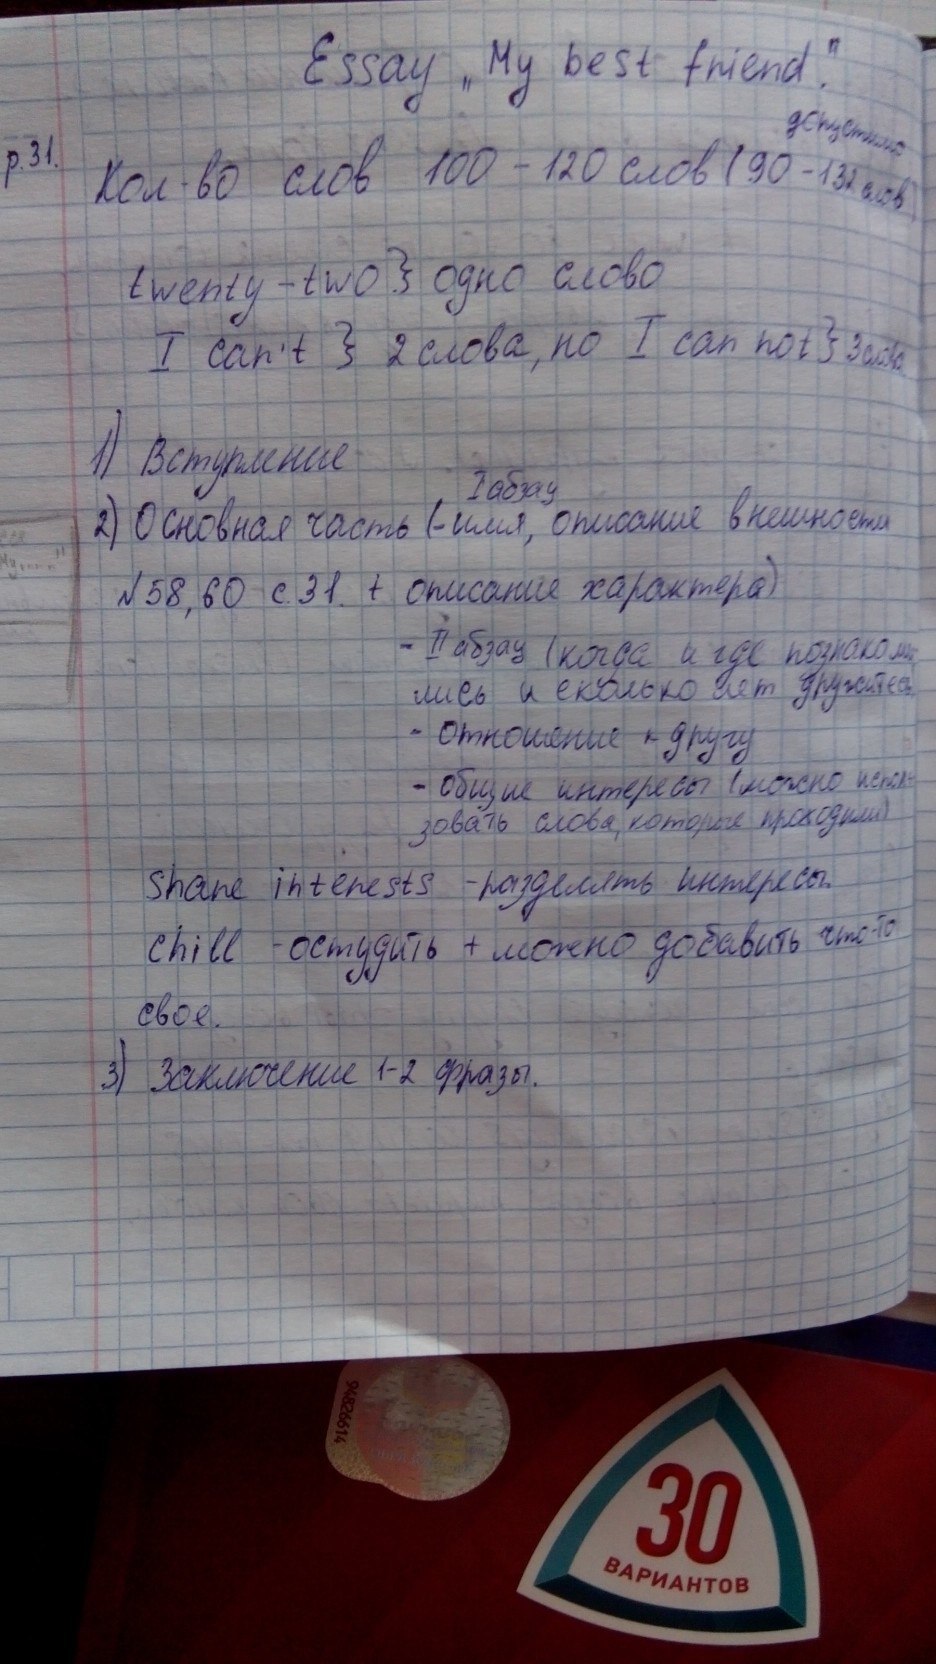 Essay „My best friend."
допустимо
р.31.
Кол-во слов 100 - 120 слов (90 - 132 слов)
twenty-two} одно слово
I can't } 2 слова, но I can not} 3 слова
1) Вступление
I абзац
2) Основная часть (-имя, описание внешности
№58,60 с.31. + описание характера)
- II абзац (когда и где познакоми
лись и сколько лет дружитесь
- отношение к другу
- общие интересы (можно исполь-
зовать слова, которые проходили)
Share interests - разделять интересы.
Chill - остудить + можно добавить что-то
свое.
3) Заключение 1-2 фразы.
94826614
30
ВАРИАНТОВ